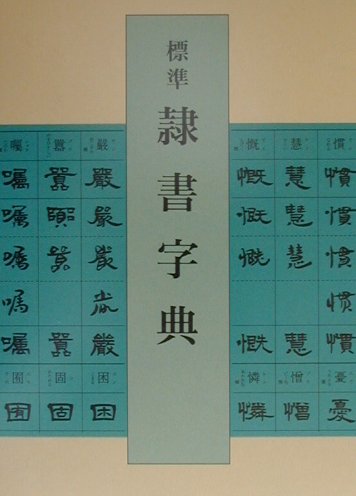 標準
隷書字典
慣慣慣慣慣慣憂憂
慧慧慧慧慧憎憎
慨慨慨慨慨憐憐
嚴嚴嚴嚴嚴困困
囂囂囂囂囂固固
囑囑囑囑囑囑